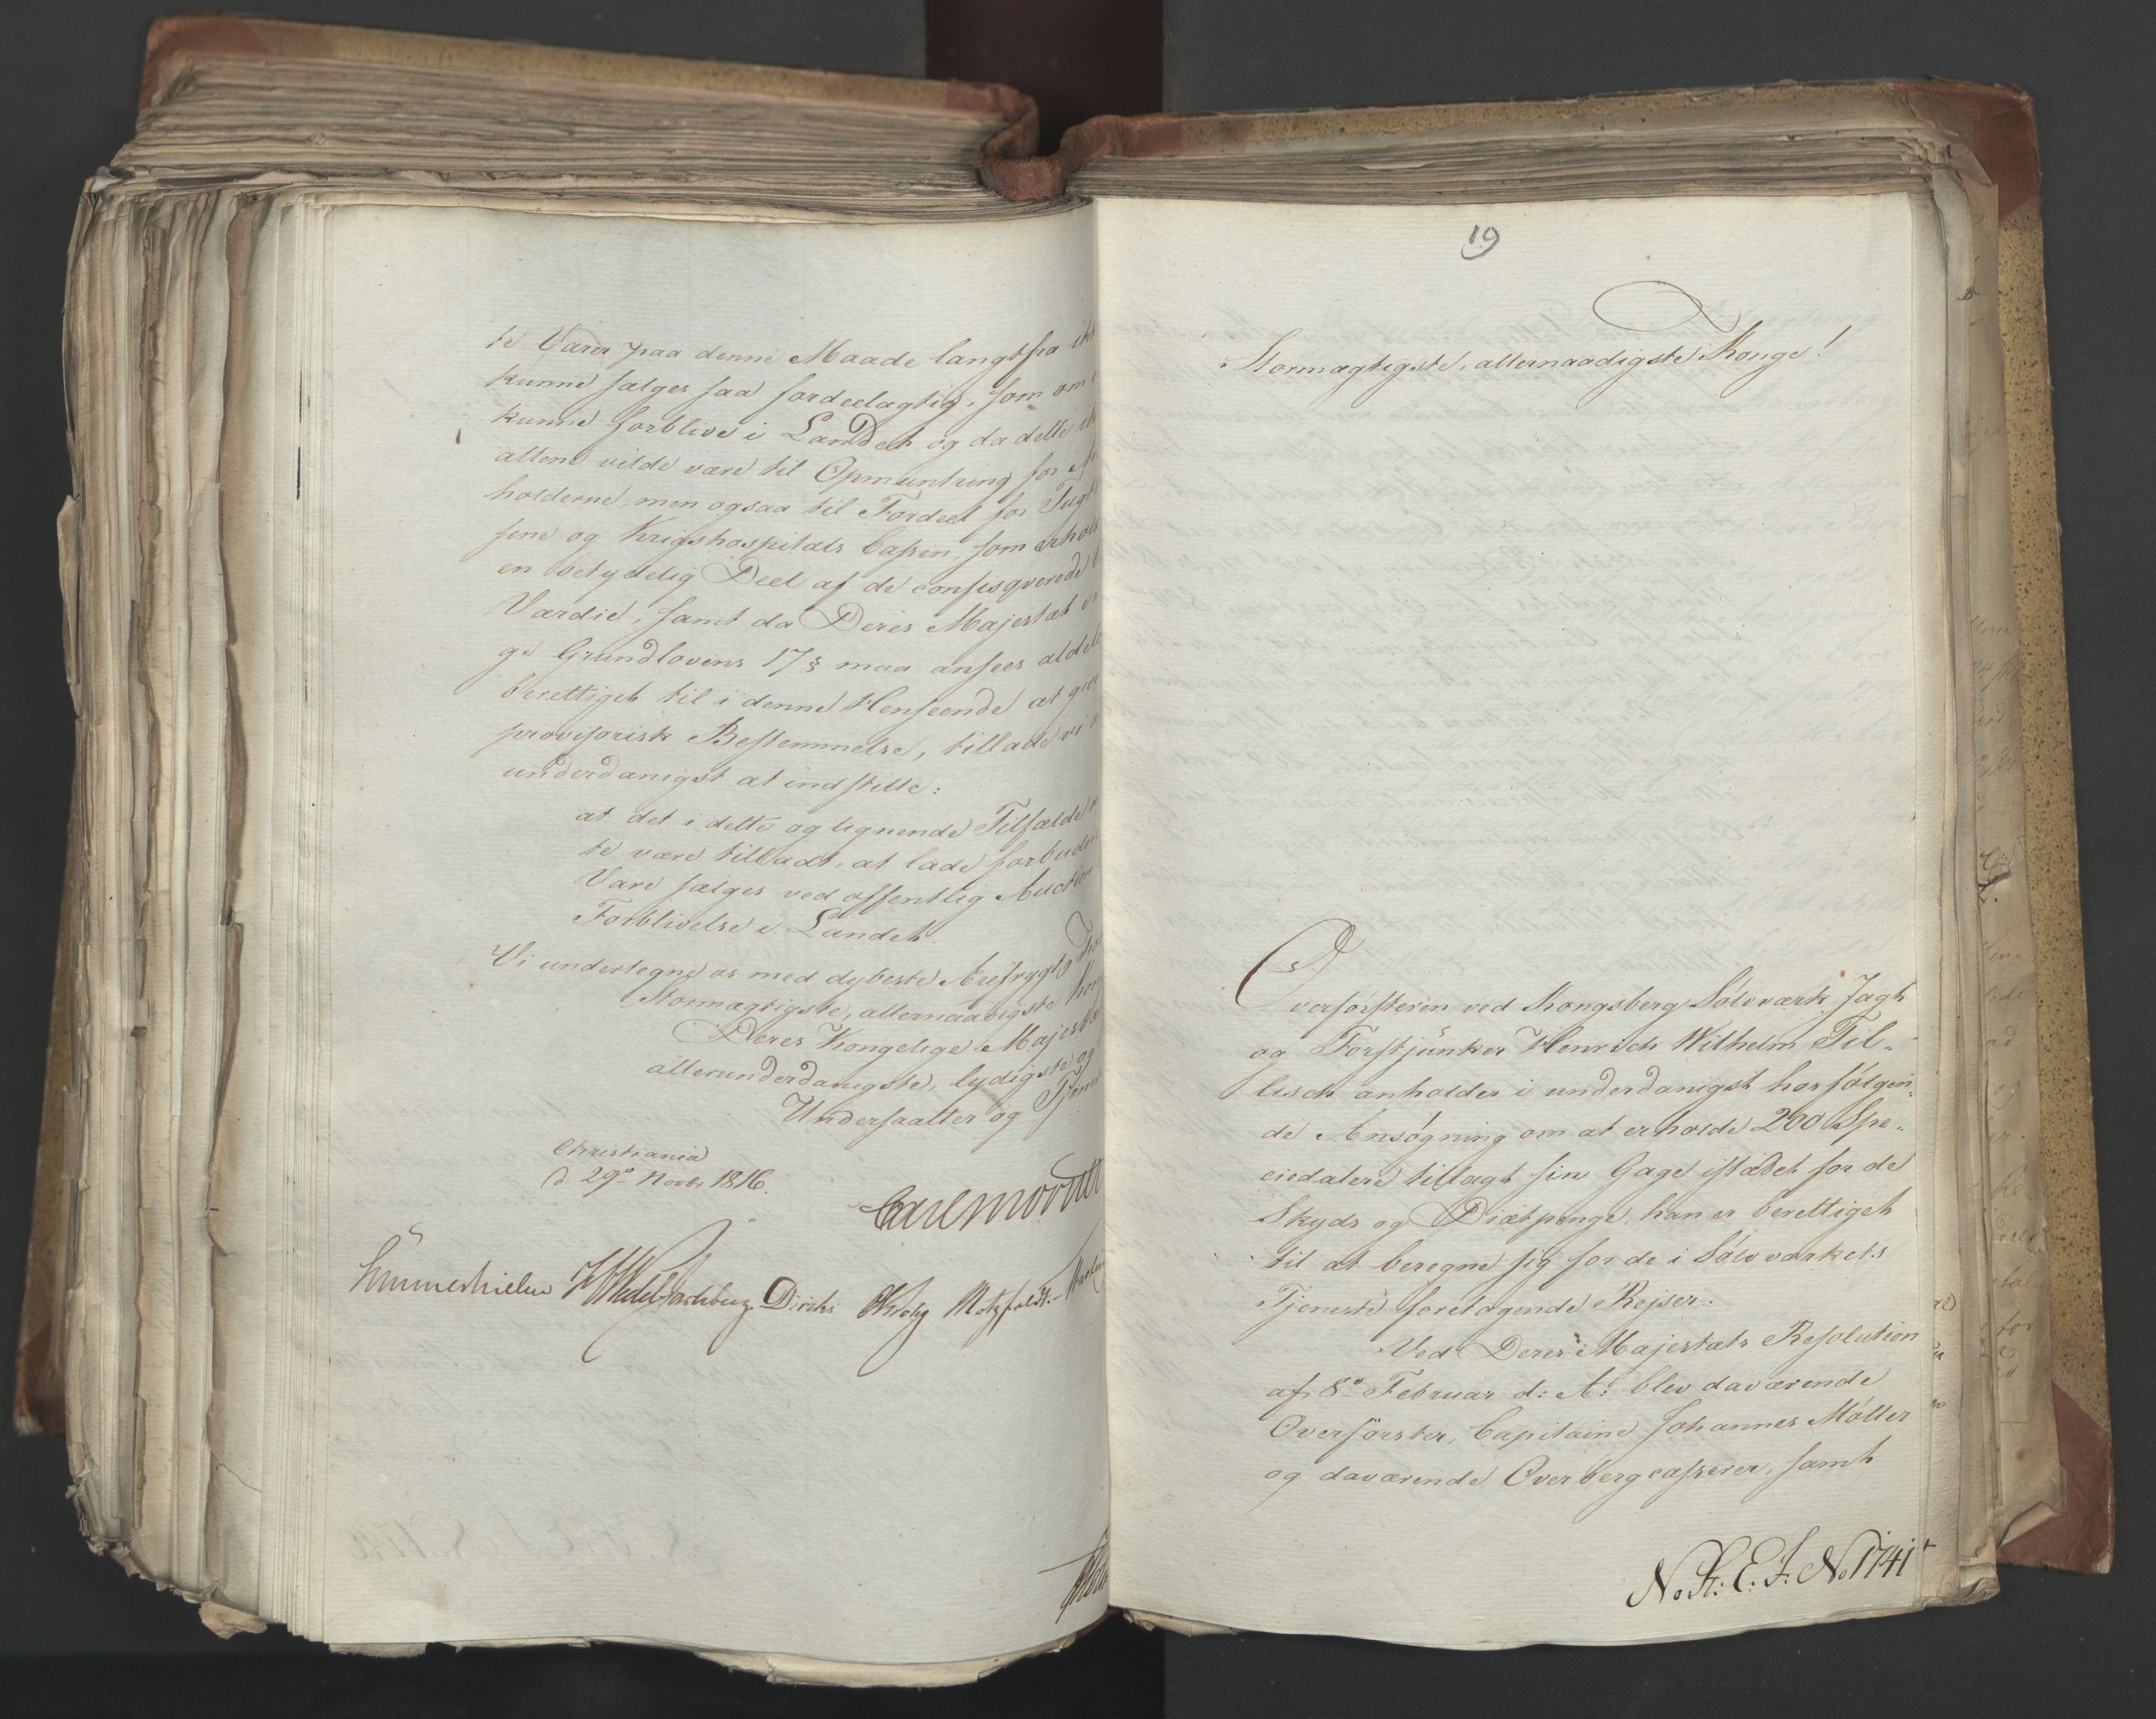 te Varer paa denne Maade langtfra ikk
kunne sælges saa fordeelagtig, som om
kunne forblive i Landet og da dette ik
allene vilde være til Opmuntring for
holderne, men ogsaa til Fordeel for Tugt
sene og Krigshospitals Cassen, som erhol
en betydelig Deel af de confisqverede
Værdie, samt da Deres Majestæt
ge Grundlovens 17 § maa ansees aldel
berettiget til i denne Henseende at giv
provisorisk Bestemmelse, tillade vi
underdanigst at indstille:
at det i dette og lignende Tilfælde
te være tilladt, at lade forbudn
Vare sælges ved offentlig Auction
Forblivelse i Landet.
Vi undertegne os med dybeste Ærefrygt
Stormægtigste, allernaadigste Kon
Deres Kongelige Majestæ
allerunderdanigste, lydigste og
Undersaatter og Tjene
Christiania
d 29de Novbr 1816.
Carl Mörner
Sommerhielm Wedel Jarlsberg Diriks Krohg Motzfeldt
19
Stormægtigste, allernaadigste Konge!
Overförsteren ved Kongsberg Sölvværk Jagt
og Forstjunker Henrich Wilhelm Til-
lisch anholder i underdanigst hosfölgen-
de Ansögning om at erholde 200 Spe-
ciedalere tillagt sin Gage istædet for de
Skyds og Diætpenge, han er berettiget
til at beregne sig for de i Sölvværkets
Tjeneste foretagende Rejser.
Ved Deres Majestæts Resolution
af 8de Februar d: A: blev daværende
Overförster, Capitaine Johannes Möller
og daværende Overbergcasserer, samt
No. St: E. J. No 1741